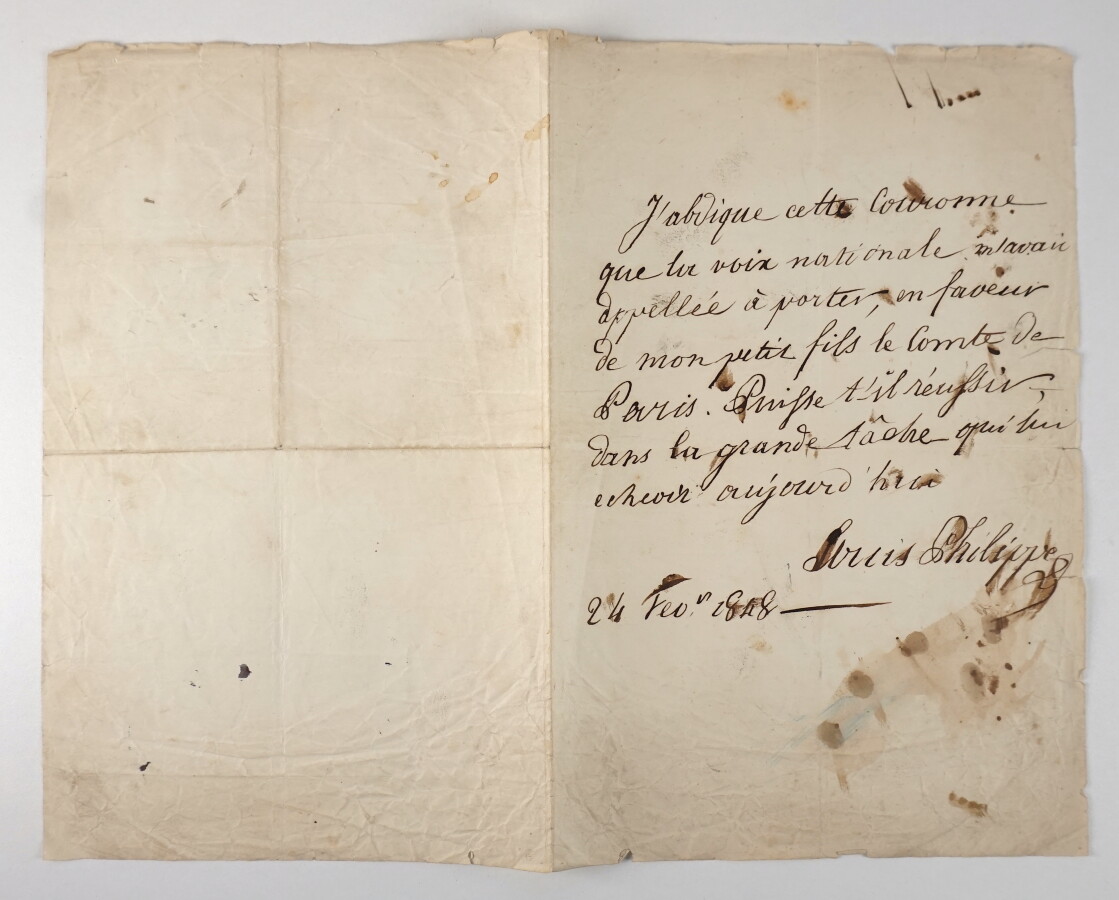 J'abdique cette Couronne
que la voix nationale m'avait
appellée à porter, en faveur
de mon petit fils le Comte de
Paris. Puisse t'il réussir,
dans la grande tâche qui lui
echeoit aujourd'hui
Louis Philippe
24 Fevr 1848